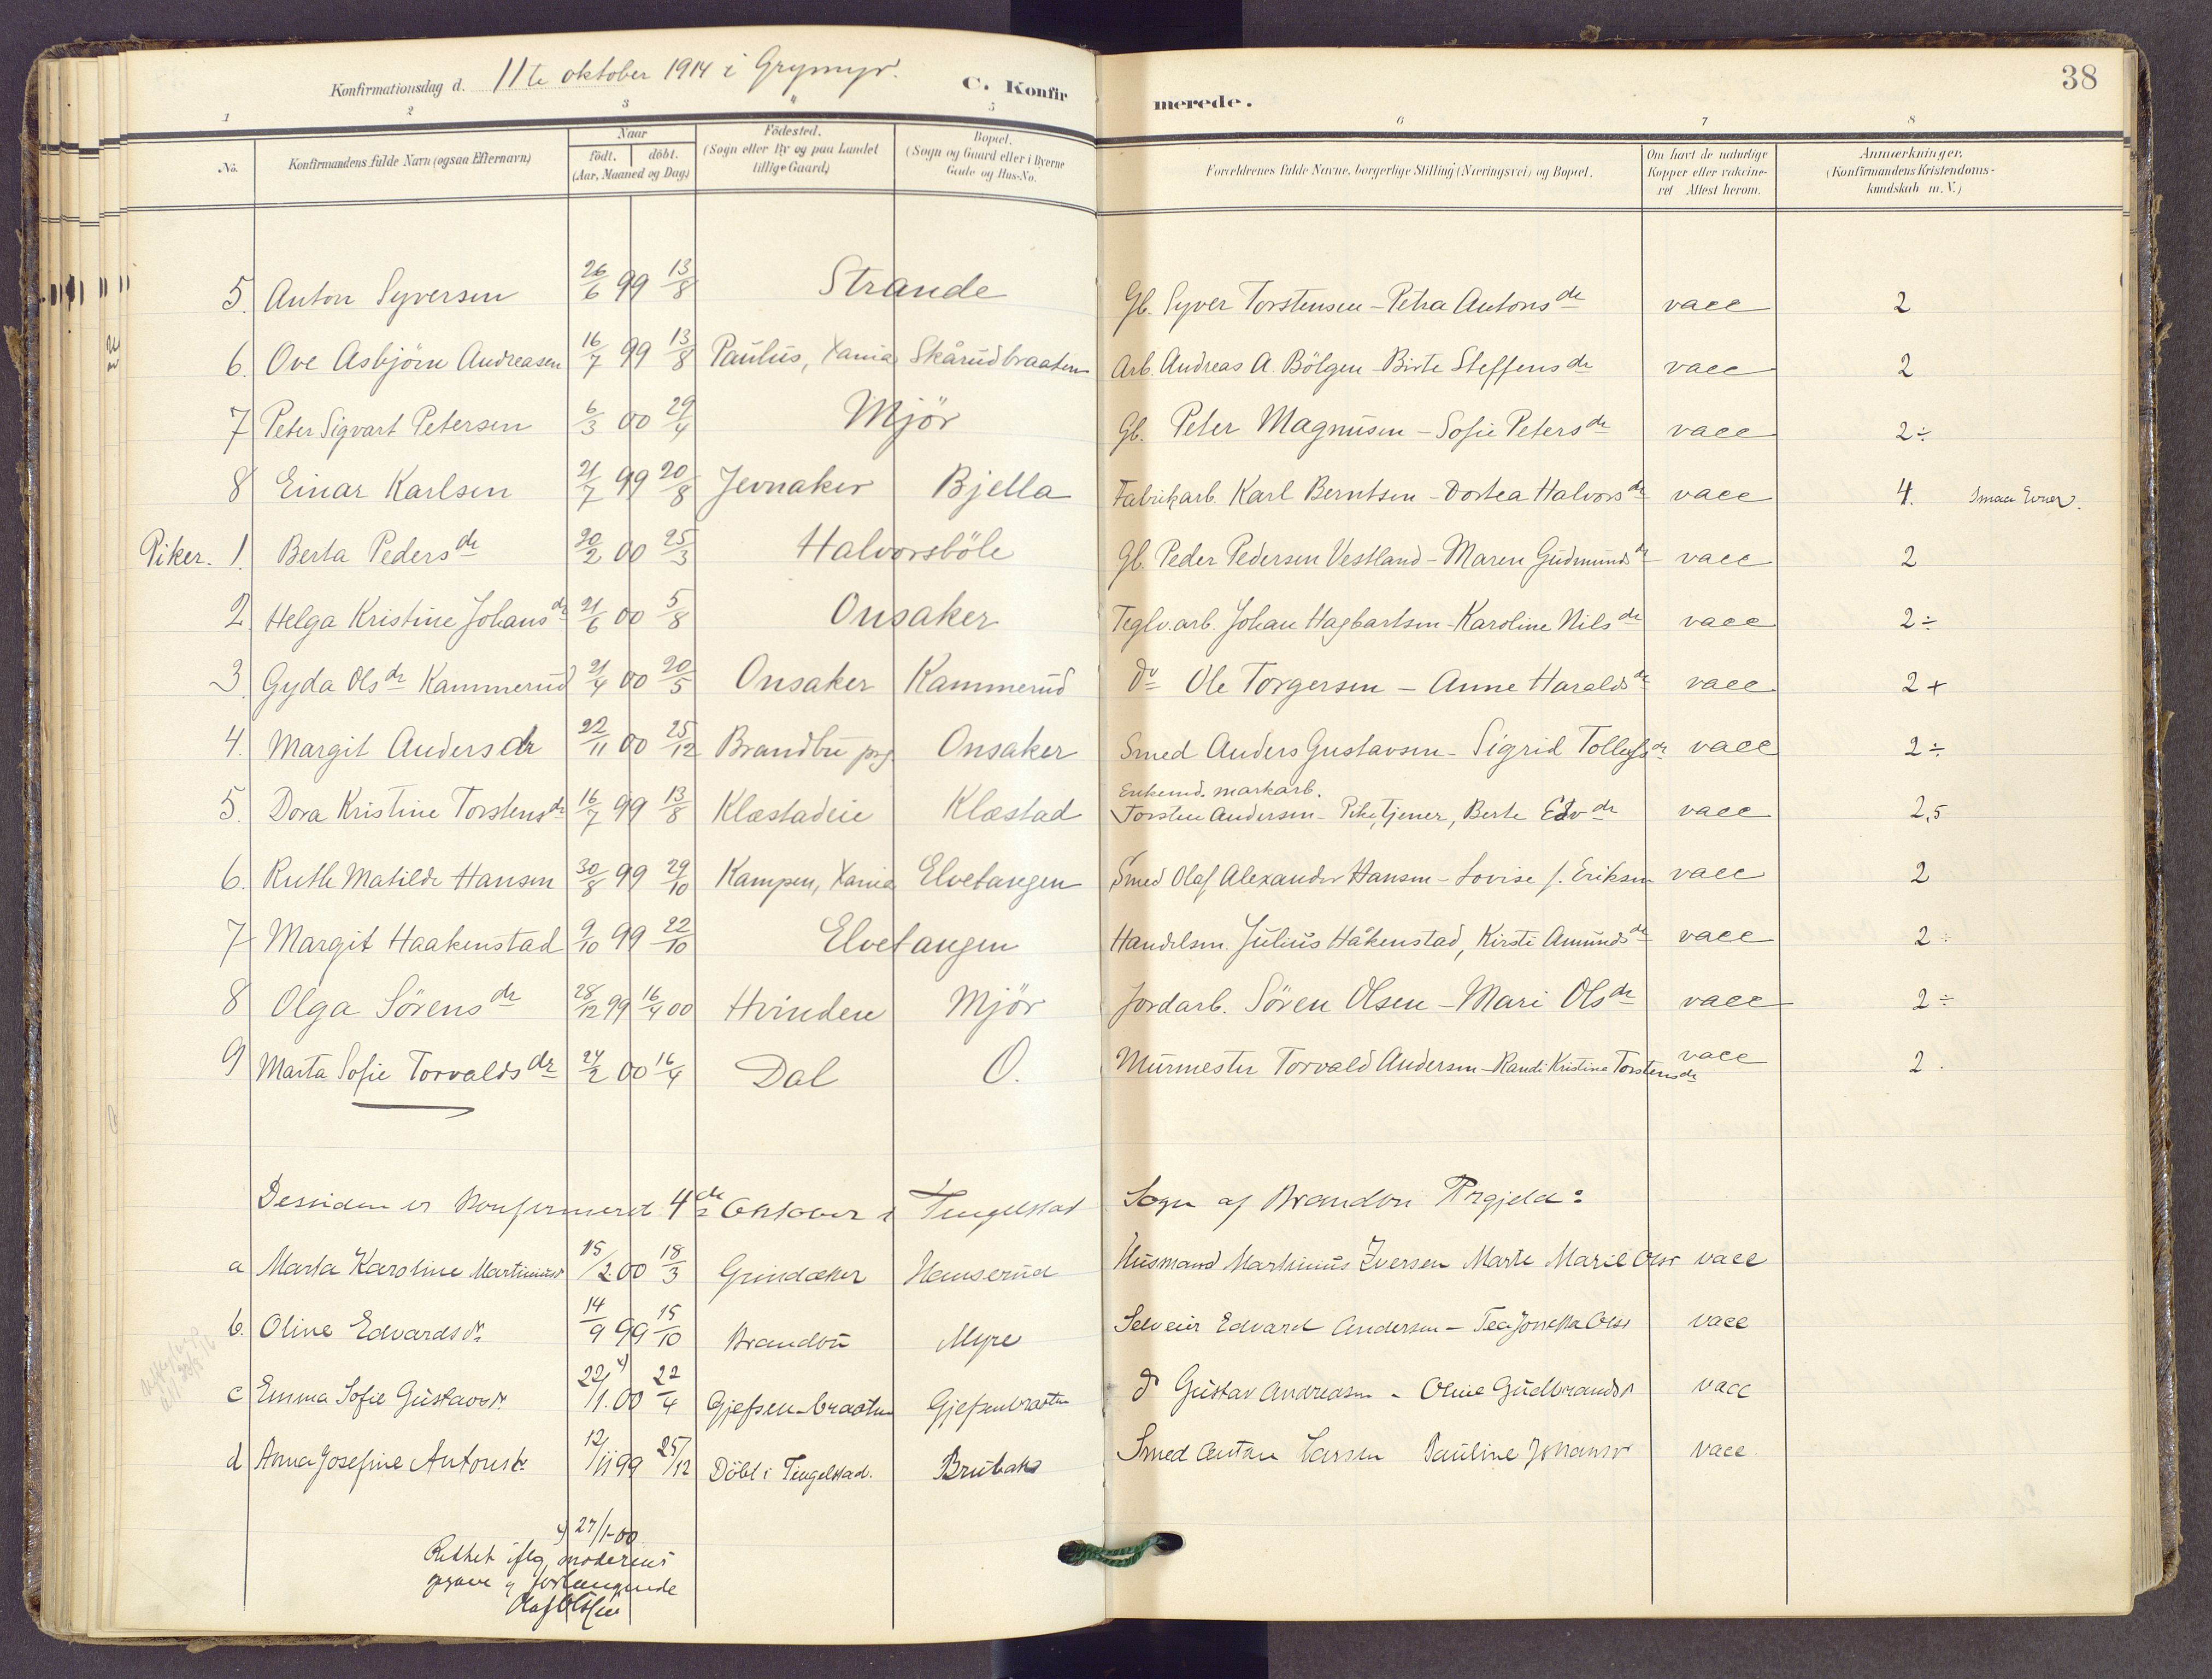 38
Konfirmationsdag d. 11te oktober 1914 i Grymyr. C. Konfirmerede.
1 2 3 4 5 6 7 8
No. Konfirmandens fulde Navn (ogsaa Efternavn) Naar födt. döbt. (Aar, Maaned og Dag) Födested. (Sogn eller By og paa Landet tillige Gaard) Bopæl. (Sogn og Gaard eller i Byerne Gade og Hus-No. Forældrenes fulde Navne, borgerlige Stilling (Næringsvei) og Bopæl. Om havt de naturlige Kopper eller vakcineret Attest herom. Anmærkninger. (Konfirmandens Kristendomskundskab m.V.)
5. Anton Syversen 26/6 99 13/8 Strande Gb. Syver Torstensen - Petra Antonsdr vacc 2
6. Ove Asbjörn Andreasen 16/7 99 13/8 Paulus, Xania Skårudbraaten Arb. Andreas A. Bölgen - Birte Steffensdr vacc 2
7 Peter Sigvart Petersen 6/3 00 29/4 Mjör Gb. Peter Magnusen - Sofie Petersdr vacc 2÷
8 Einar Karlsen 21/7 99 20/8 Jevnaker Bjella Fabrikarb. Karl Berntsen - Dortea Halvorsdr vacc 4. Smaa Evner.
Piker. 1. Berta Pedersdr 20/2 00 25/3 Halvorsböle Gb. Peder Pedersen Vestland - Maren Gudmundsdr vacc 2
2. Helga Kristine Johansdr 21/6 00 5/8 Onsaker Teglv.arb. Johan Hagbartsen - Karoline Nilsdr vacc 2÷
3. Gyda Olsdr Kammerud 21/4 00 20/5 Onsaker Kammerud Do Ole Torgersen - Anne Haraldsdr vacc 2+
4. Margit Andersdr 22/11 00 25/12 Brandbu prg Onsaker Smed Anders Gustavsen - Sigrid Tollefsdr vacc 2÷
5. Dora Kristine Torstensdr 16/7 99 13/8 Klæstadeie Klæstad Enkemd. markarb. Torsten Andersen - Pike, tjener, Berte Edvdr vacc 2,5
6. Ruth Matilde Hansen 30/8 99 29/10 Kampen, Xania Elvetangen Smed Olaf Alexander Hansen - Lovise f. Eriksen vacc 2
7 Margit Haakenstad 9/10 99 22/10 Elvetangen Handelsm. Julius Håkenstad, Kirsti Amundsdr vacc 2÷
8 Olga Sörensdr 28/12 99 16/4 00 Hvinden Mjör Jordarb. Sören Olsen - Mari Olsdr vacc 2÷
9 Marta Sofie Torvaldsdr 24/2 00 16/4 Dal O. Murmester Torvald Andersen - Randi Kristine Torstensdr vacc 2.
Desuden er konfirmeret 4de Oktober i Tingelstad Sogn af Brandbu Prgjeld:
a Marta Karoline Martinusdr 15/2 00 18/3 Grindaker Hanserud Husmand Martinius Iversen Marte Marie Olsdr vacc
b. Oline Edvardsdr. 14/9 99 15/10 Brandbu Myre Selveier Edvard Andersen - Tea Jonetta Olsdr vacc
c Emma Sofie Gustavsdr. 22/1.00 22/4 Gjefsen-braaten Gjefsenbraaten Do Gustav Andreasen - Oline Gudbrandsdr vacc
d Anna Josefine Antonsdr. 12/11 99 25/12 Döbt i Tingelstad. Brubak Smed Anton Larsen Pauline Johansdr vacc.
x) 27/1-00
Rettet iflg. moderens
opgave og forlangende
Olaf Olssen